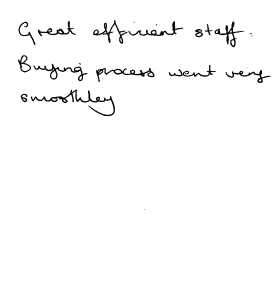 Great efficient staff.
Buying process went very
smoothley